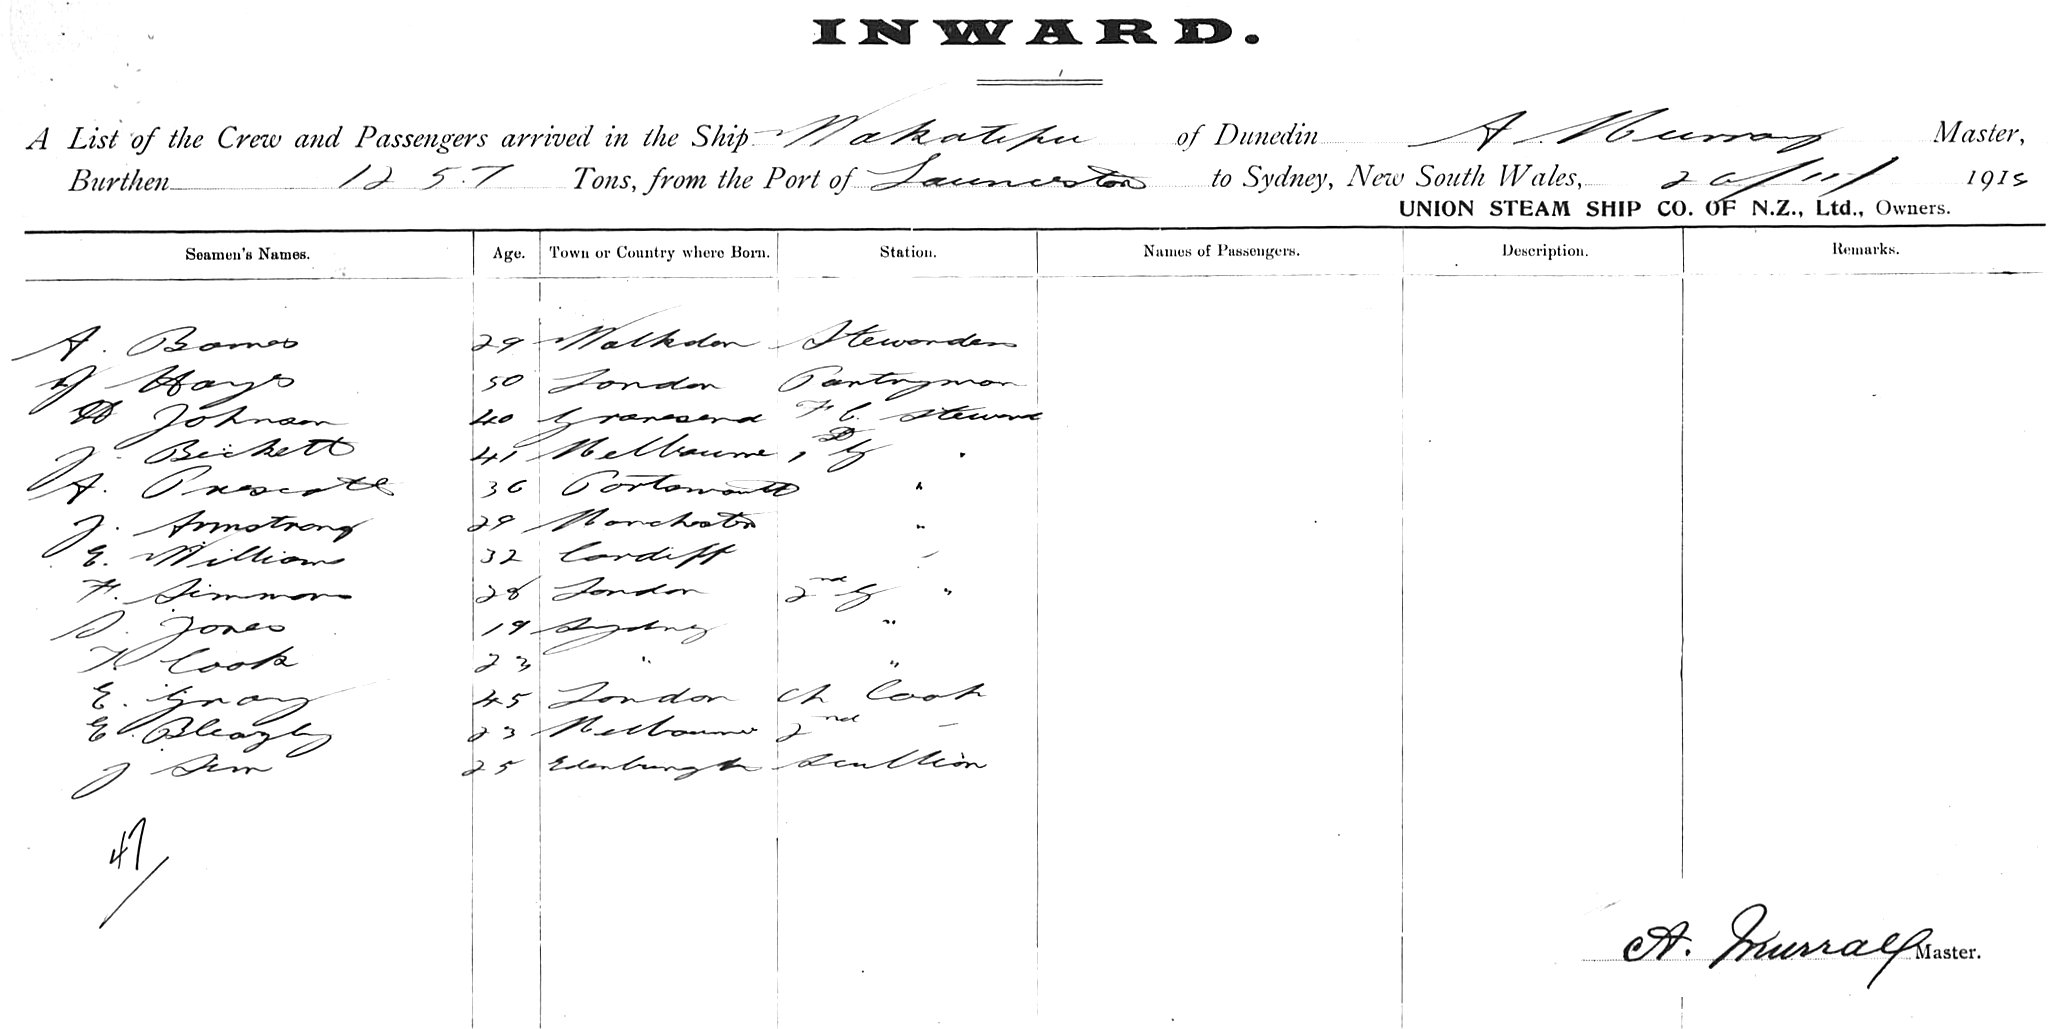 INWARD.
A List of the Crew and Passengers arrived in the Ship Wakatipu of Dunedin A. Murray Master,
Burthen 1257 Tons, from the Port of Launceston to Sydney, New South Wales, 20/11/ 1915
UNION STEAM SHIP CO. OF N.Z., Ltd., Owners.
Seamen's Names. Age. Town or Country where Born. Station. Names of Passengers. Description. Remarks.
A. Barnes 29 Stewardess
Hays 50 London Pantryman
H Johnson 40 Gravesend F C Steward
J. Bickett 41 Melbourne " "
A. Prescott 36 Portsmouth "
J. Armstrong 29 Manchester "
E. Williams 32 Cardiff "
F. Simmons 28 London 2nd "
D. Jones 19 Sydney "
F. Cook 23 " "
E. Gray 45 London Ch Cook
E. Bleazby 23 Melbourne 2nd "
J Sim 25 Edenburgh Scullion
47/
A. Murray Master.